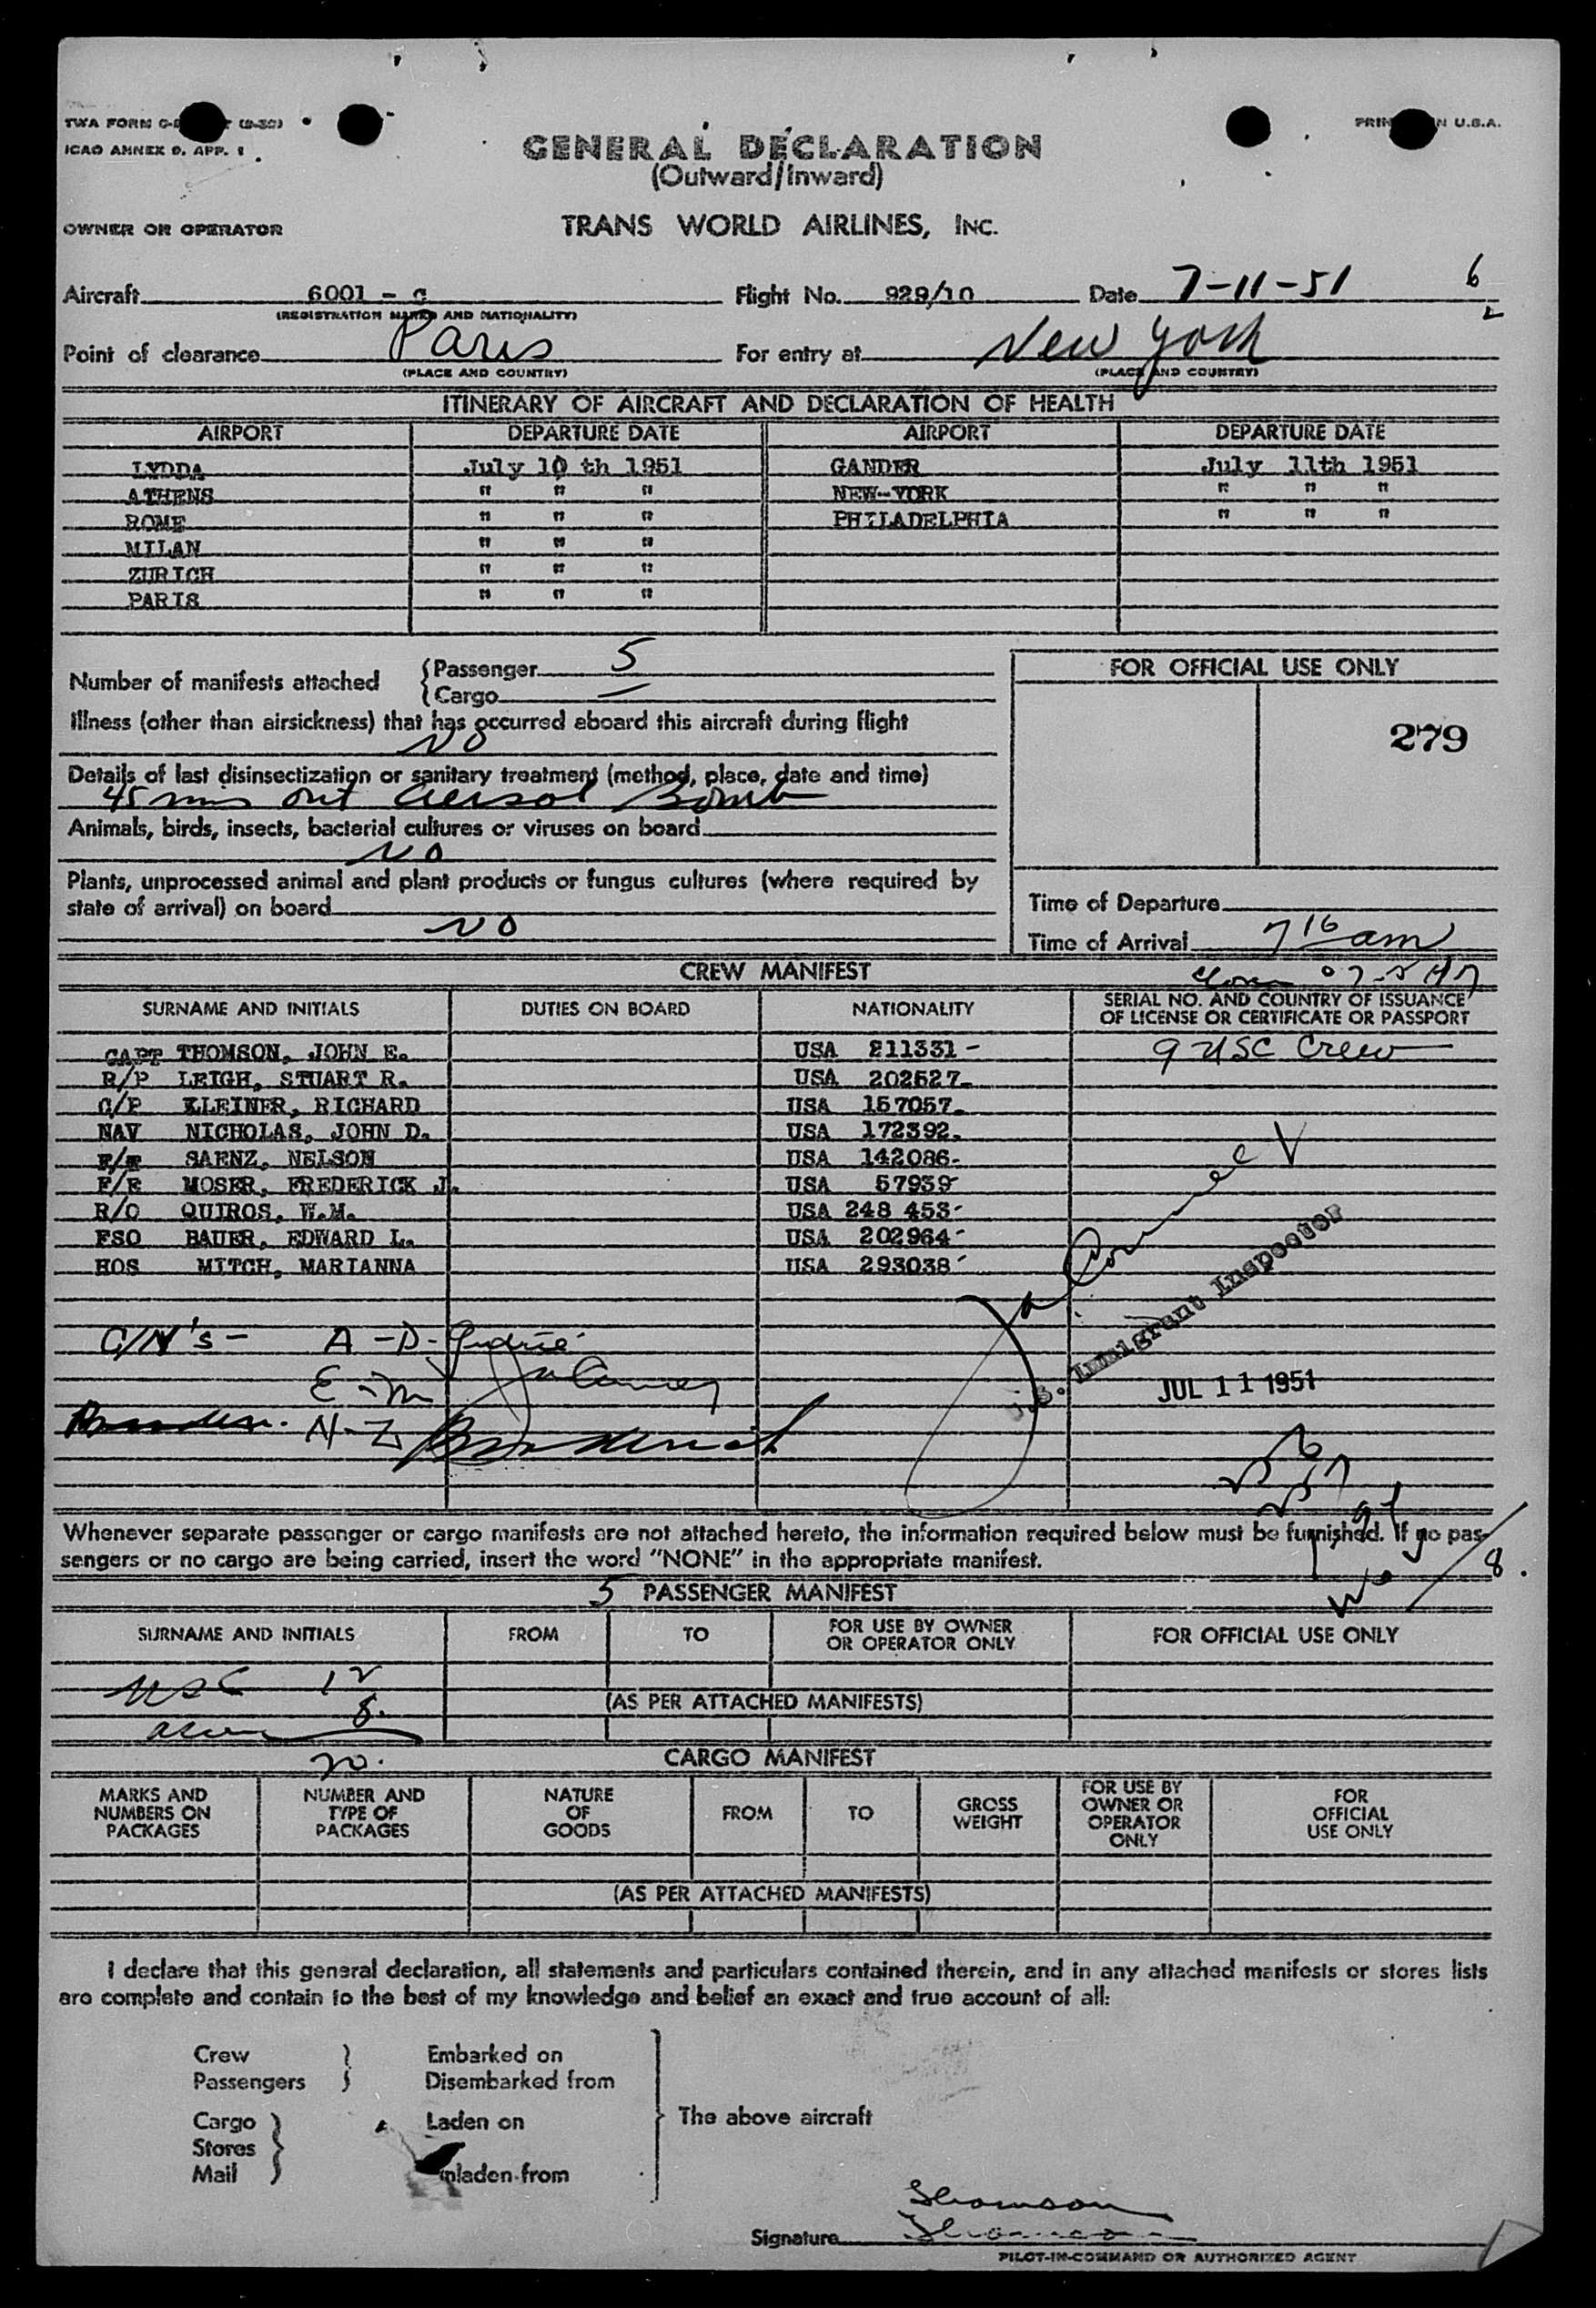 TWA FORM (9-50)
ICAO ANNEX 9, APP. 1
PRIN N U.S.A.
GENERAL DECLARATION
(Outward/Inward)
OWNER OR OPERATOR TRANS WORLD AIRLINES, INC.
Aircraft 6001 - C Flight No. 929/10 Date 7-11-51 6
(REGISTRATION MARKS AND NATIONALITY)
Point of clearance Paris For entry at New York
(PLACE AND COUNTRY) (PLACE AND COUNTRY)
ITINERARY OF AIRCRAFT AND DECLARATION OF HEALTH
AIRPORT DEPARTURE DATE AIRPORT DEPARTURE DATE
LYDDA July 10 th 1951 GANDER July 11th 1951
ATHENS " " " NEW-YORK " " "
ROME " " " PHILADELPHIA " " "
MILAN " " "
ZURICH " " "
PARIS " " "
Number of manifests attached { Passenger 5
{ Cargo —
FOR OFFICIAL USE ONLY
279
Illness (other than airsickness) that has occurred aboard this aircraft during flight
NO
Details of last disinsectization or sanitary treatment (method, place, date and time)
45 mins out Aersol Bomb
Animals, birds, insects, bacterial cultures or viruses on board
NO
Plants, unprocessed animal and plant products or fungus cultures (where required by
state of arrival) on board
NO
Time of Departure
Time of Arrival 7 16 am
CREW MANIFEST
SURNAME AND INITIALS DUTIES ON BOARD NATIONALITY SERIAL NO. AND COUNTRY OF ISSUANCE
OF LICENSE OR CERTIFICATE OR PASSPORT
CAPT THOMSON, JOHN E. USA 211331 - 9 USC Crew
R/P LEIGH, STUART R. USA 202527-
C/P KLEINER, RICHARD USA 157057-
NAV NICHOLAS, JOHN D. USA 172392-
F/E SAENZ, NELSON USA 142086-
F/E MOSER, FREDERICK J. USA 57939-
R/O QUIROS, W.M. USA 248 453-
FSO BAUER, EDWARD L. USA 202964-
HOS MITCH, MARIANNA USA 293038-
U.S. Immigrant Inspector
C/N's - A-D-
E-M
JUL 11 1951
N-Z
Whenever separate passenger or cargo manifests are not attached hereto, the information required below must be furnished. If no pas-
sengers or no cargo are being carried, insert the word "NONE" in the appropriate manifest.
8.
5 PASSENGER MANIFEST
SURNAME AND INITIALS FROM TO FOR USE BY OWNER
OR OPERATOR ONLY FOR OFFICIAL USE ONLY
USC 12
(AS PER ATTACHED MANIFESTS)
8.
20.
CARGO MANIFEST
MARKS AND
NUMBERS ON
PACKAGES
NUMBER AND
TYPE OF
PACKAGES
NATURE
OF
GOODS
FROM
TO
GROSS
WEIGHT
FOR USE BY
OWNER OR
OPERATOR
ONLY
FOR
OFFICIAL
USE ONLY
(AS PER ATTACHED MANIFESTS)
I declare that this general declaration, all statements and particulars contained therein, and in any attached manifests or stores lists
are complete and contain to the best of my knowledge and belief an exact and true account of all:
Crew } Embarked on
Passengers } Disembarked from
Cargo } Laden on The above aircraft
Stores
Mail nladen from
Thomson
Signature Thomson
PILOT-IN-COMMAND OR AUTHORIZED AGENT